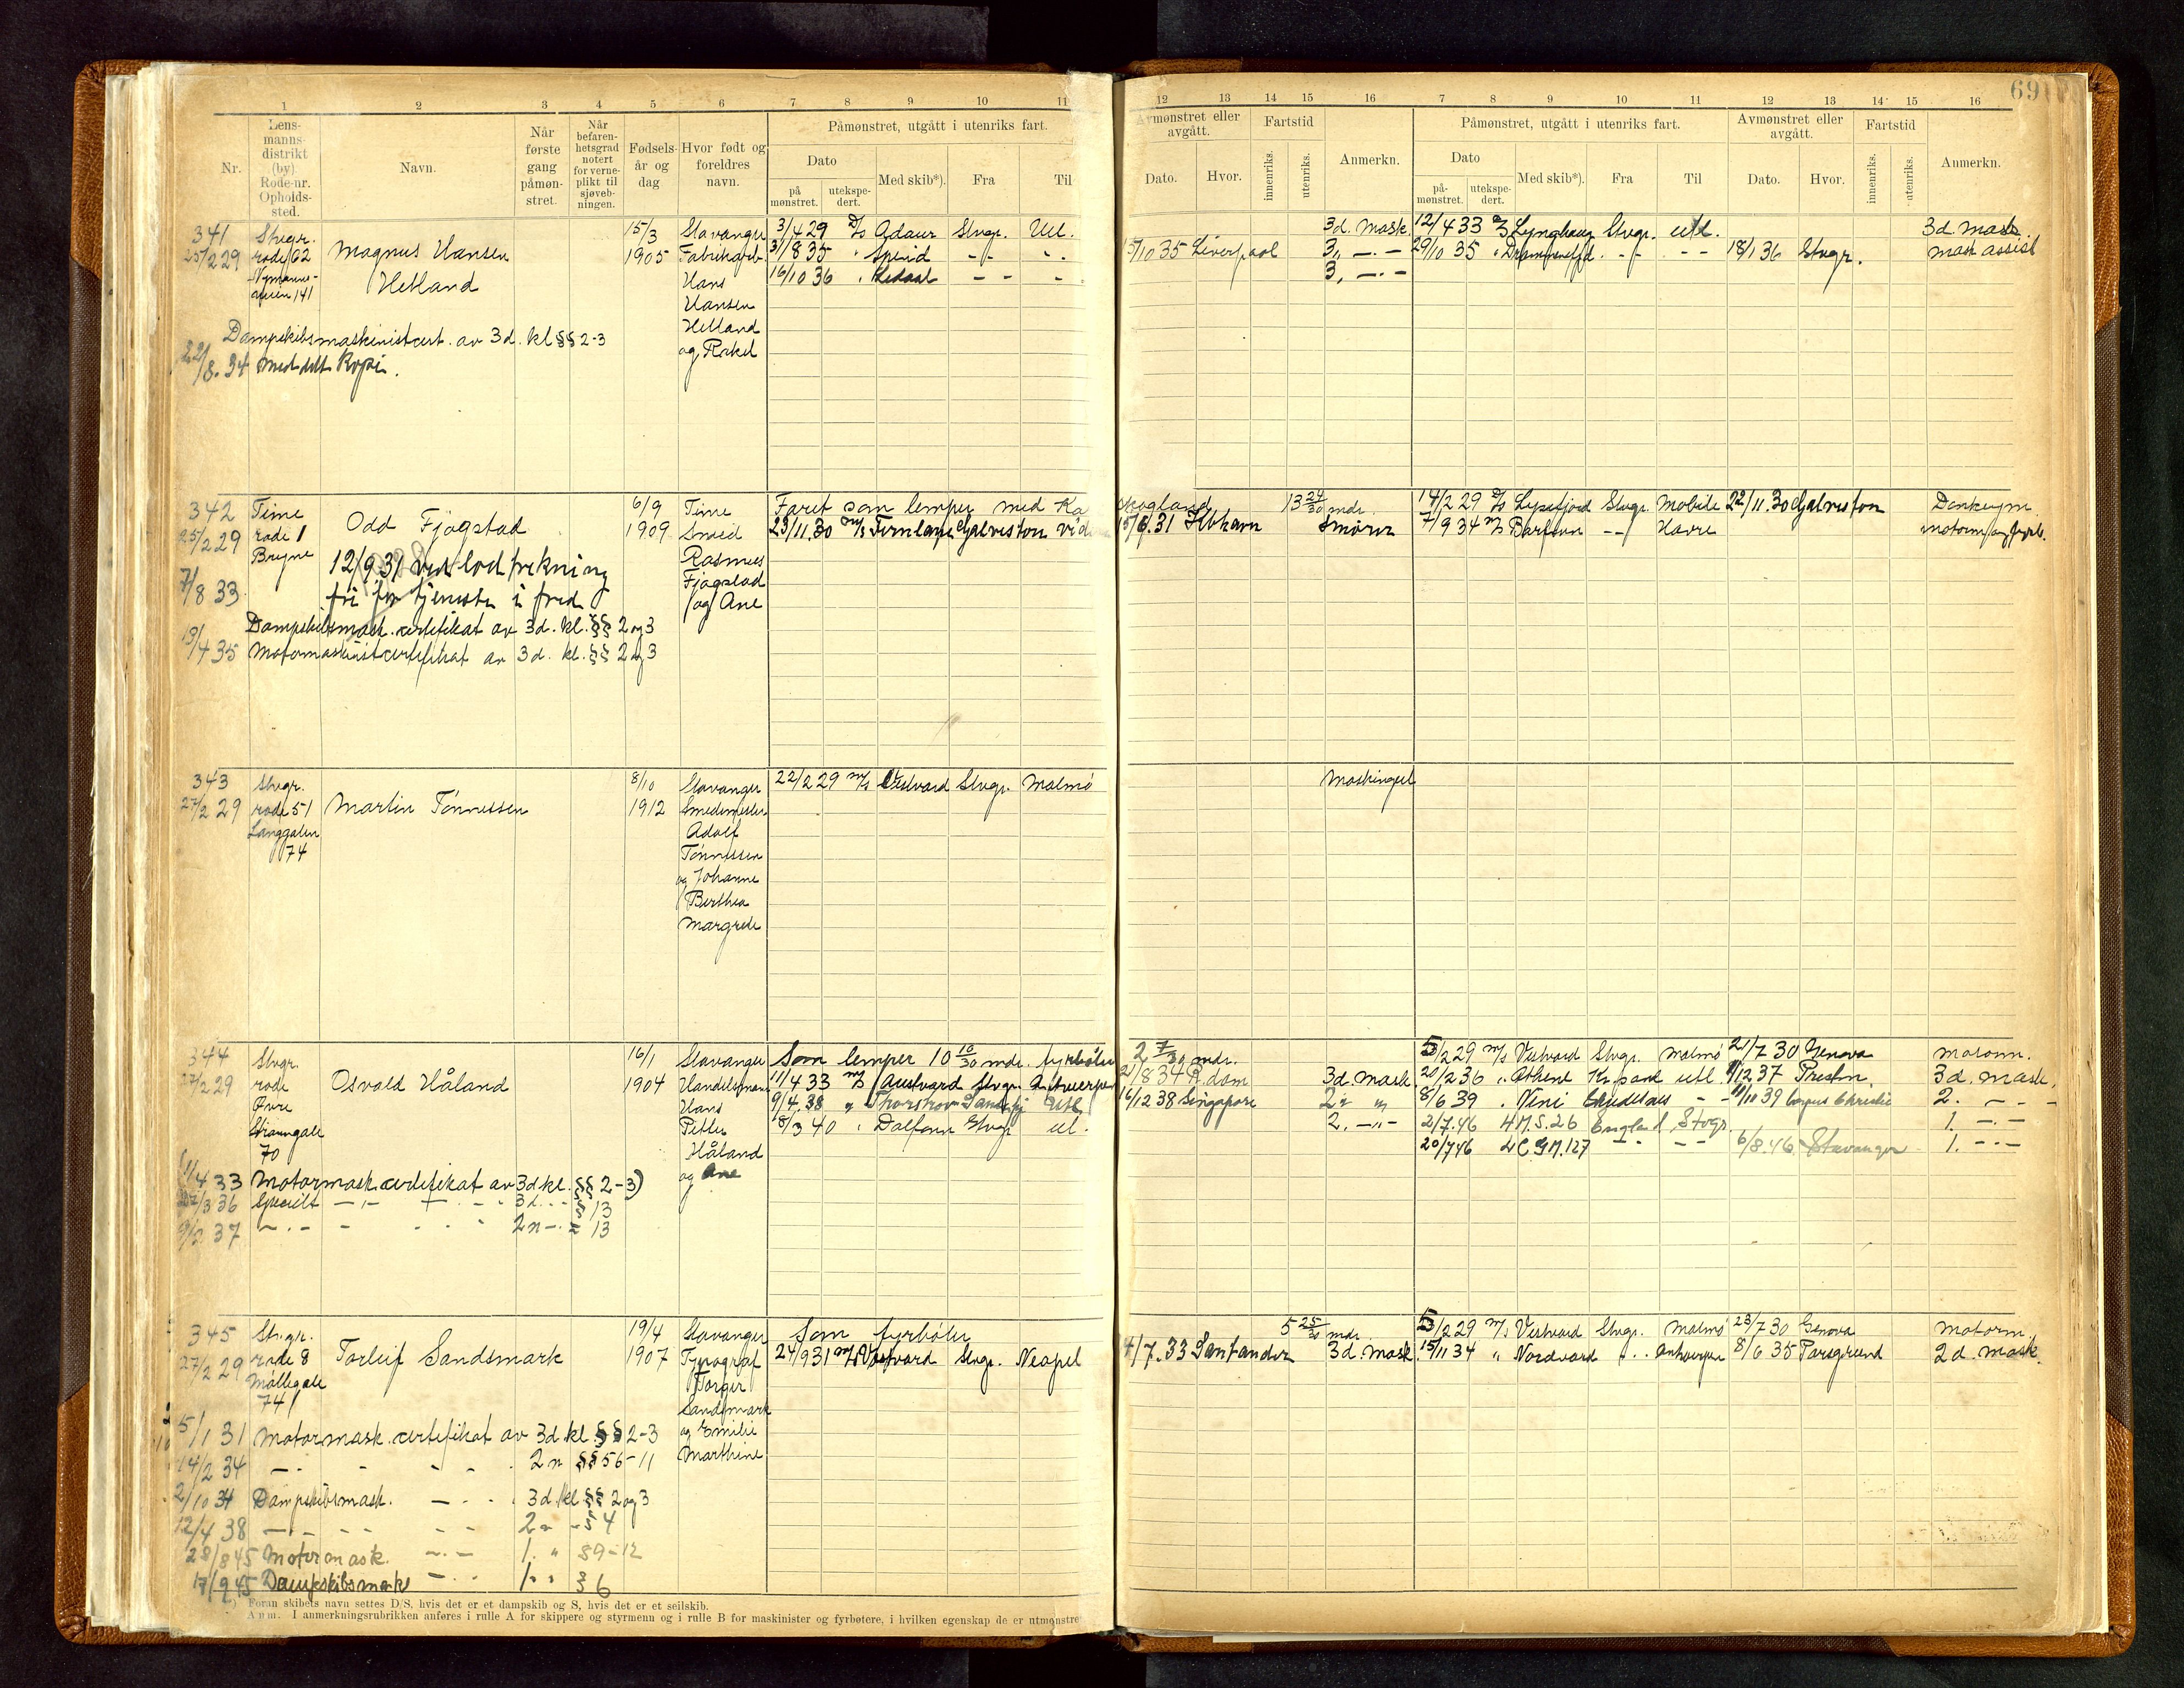 69
1 2 3 4 5 6 7 8 9 10 11
12 13 14 15 16 7 8 9 10 11 12 13 14 15 16
Nr.
Lens-
manns-
distrikt
(by)
Rode-nr.
Opholds-
sted.
Navn.
Når
første
gang
påmøn-
stret.
Når
befaren-
hetsgrad
notert
for verne-
plikt til
sjøveb-
ningen.
Fødsels-
år og
dag
Hvor født og
foreldres
navn.
Påmønstret, utgått i utenriks fart.
Dato
på
mønstret.
utekspe-
dert.
Med skib*).
Fra
Til
Avmønstret eller
avgått.
Dato.
Hvor.
Fartstid
innenriks.
utenriks.
Anmerkn.
Påmønstret, utgått i utenriks fart.
Dato
på-
mønstret.
utekspe-
dert.
Med skib*).
Fra
Til
Avmønstret eller
avgått.
Dato.
Hvor.
Fartstid
innenriks.
utenriks.
Anmerkn.
341
25/2 29
Stvgr.
rode 62
141
Magnus Hansen
Hetland
15/3
1905
Stavanger
Fabrikarb.
Hans
Hansen
Hetland
og Rakel
3/4 29 D/S Adaur Stvgr. Utl.
31/8 35 " Spind - - - -
16/10 36 " Ledaal - - -
Dampskibsmaskinistcert. av 3d. kl §§ 2-3
22/8.34 Meddelt Kopi.
5/10 35 Liverpool
3d. Mask.
3. - . -
3. - . -
12/4 33 D/S Lynghaug Stvgr. Utl.
29/10 35 " Drammensfjd. - - - -
18/1 36 Stvgr.
3d. Mask.
Mask assist
342
25/2 29
Time
rode 1
Bryne
Odd Fjogstad
6/9
1909
Time
Smed
Rasmus
Fjogstad
og Ane
Faret som lemper med Ka
23/11.30 M/S Fernlane Galveston
12/9 31 ved lodtrekning
fri for tjeneste i fred
7/8 33
Dampskibsmask. certifikat av 3d. kl. §§ 2 og 3
13/4 35 Motormaskinistcertifikat av 3d. kl. §§ 2 og 3
15/6.31 Kbhavn
13 24/30 mdr.
Smører
14/2 29 D/S Lysefjord Stvgr. Mobile 22/11.30 Galveston
7/9 34 M/S -- Havre
Donkeym.
343
27/2 29
Stvgr.
rode 51
Langgaten
74
Martin Tönnessen
8/10
1912
Stavanger
Smedmester
Adolf
Tönnessen
og Johanne
Berthea
Margrete
22/2 29 M/S Vestvard Stvgr. Malmö
344
27/2 29
Stvgr.
rode
Øvre
Strandgate
70
Osvald Håland
16/1
1904
Stavanger
Handelsmann
Hans
Petter
Håland
og Ane
Som lemper 10 10/30 mdr. fyrbøter
11/4 33 M/S Austvard Stvgr. Antwerpen
9/4.38 " Thorshov Sandefj Utl.
18/3 40 " Dalfonn Stvgr. utl.
11/4 33 Motormask.certifikat av 3d kl. §§ 2-3)
27/3 36 Specielt - . - 3d. - - § 13
37 - . - - 2n - . - 13
2 7/30 mdr.
21/8 34 R.dam
16/12 38 Singapore
3d. Mask.
2. " "
2. - " -
5/2 29 M/S Vestvard Stvgr. Malmö 21/7 30 Genova
20/2 36 " Athene Kr.sand utl. 12 37 Preston.
8/6 39 " Vini - - 11/11 39 Corpus Christie
2/7.46 H.M.S. 26 England Stvgr.
20/7 46 127 - - - - 6/8.46 Stavanger
Motorm.
3d. Mask.
2. - - -
1. - . -
1. - . -
345
27/2 29
Stvgr.
rode 8
Møllegate
74
Torleif Sandsmark
19/4
1907
Stavanger
Typograf
Torger
Sandsmark
og Emilie
Marthine
Som fyrbøter
24/9 31 M/S Vestvard Stvgr. Neapel
5/1 31 Motormask. certifikat av 3d kl §§ 2-3
14/2 34 - . - - - - 2n §§ 56-11
2/10 34 Dampskibsmask. - . . 3d. kl §§ 2 og 3
12/4 38 - . - - - - - 2n - § 4
28/8 45 Motormask. - . - 1. " §9-12
17/9 45 Dampskibsmask - . . 1. " § 6
5 25/30 mdr.
4/7.33 Santander
3d. Mask.
5/2 29 M/S Vestvard Stvgr. Malmö 23/7 30 Genova
15/11 34 " Nordvard - . . Antwerpen 8/6 35 Porsgrund
Motorm.
2d. Mask.
*) Foran skibets navn settes D/S, hvis det er et dampskib og S, hvis det er et seilskib.
Anm. I anmerkningsrubrikken anføres i rulle A for skippere og styrmenn og i rulle B for maskinister og fyrbøtere, i hvilken egenskap de er utmønstre